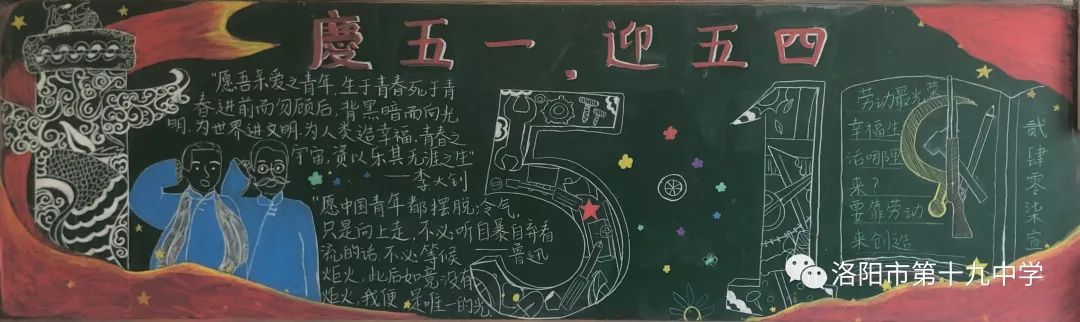 慶五一,迎五四
"愿吾亲爱之青年,生于青春死于青
春,进前而勿顾后,背黑暗而向光
明,为世界进文明,为人类造幸福,青春之
宇宙,资以乐其无涯之生"
——李大钊
"愿中国青年都摆脱冷气,
只是向上走,不必听自暴自弃者
流的话,不必等候
——鲁迅
炬火,此后如竟没有
炬火,我便是唯一的光
51
劳动最光荣
幸福生
活哪里
来?
要靠劳动
来创造
贰肆零柒宣
洛阳市第十九中学